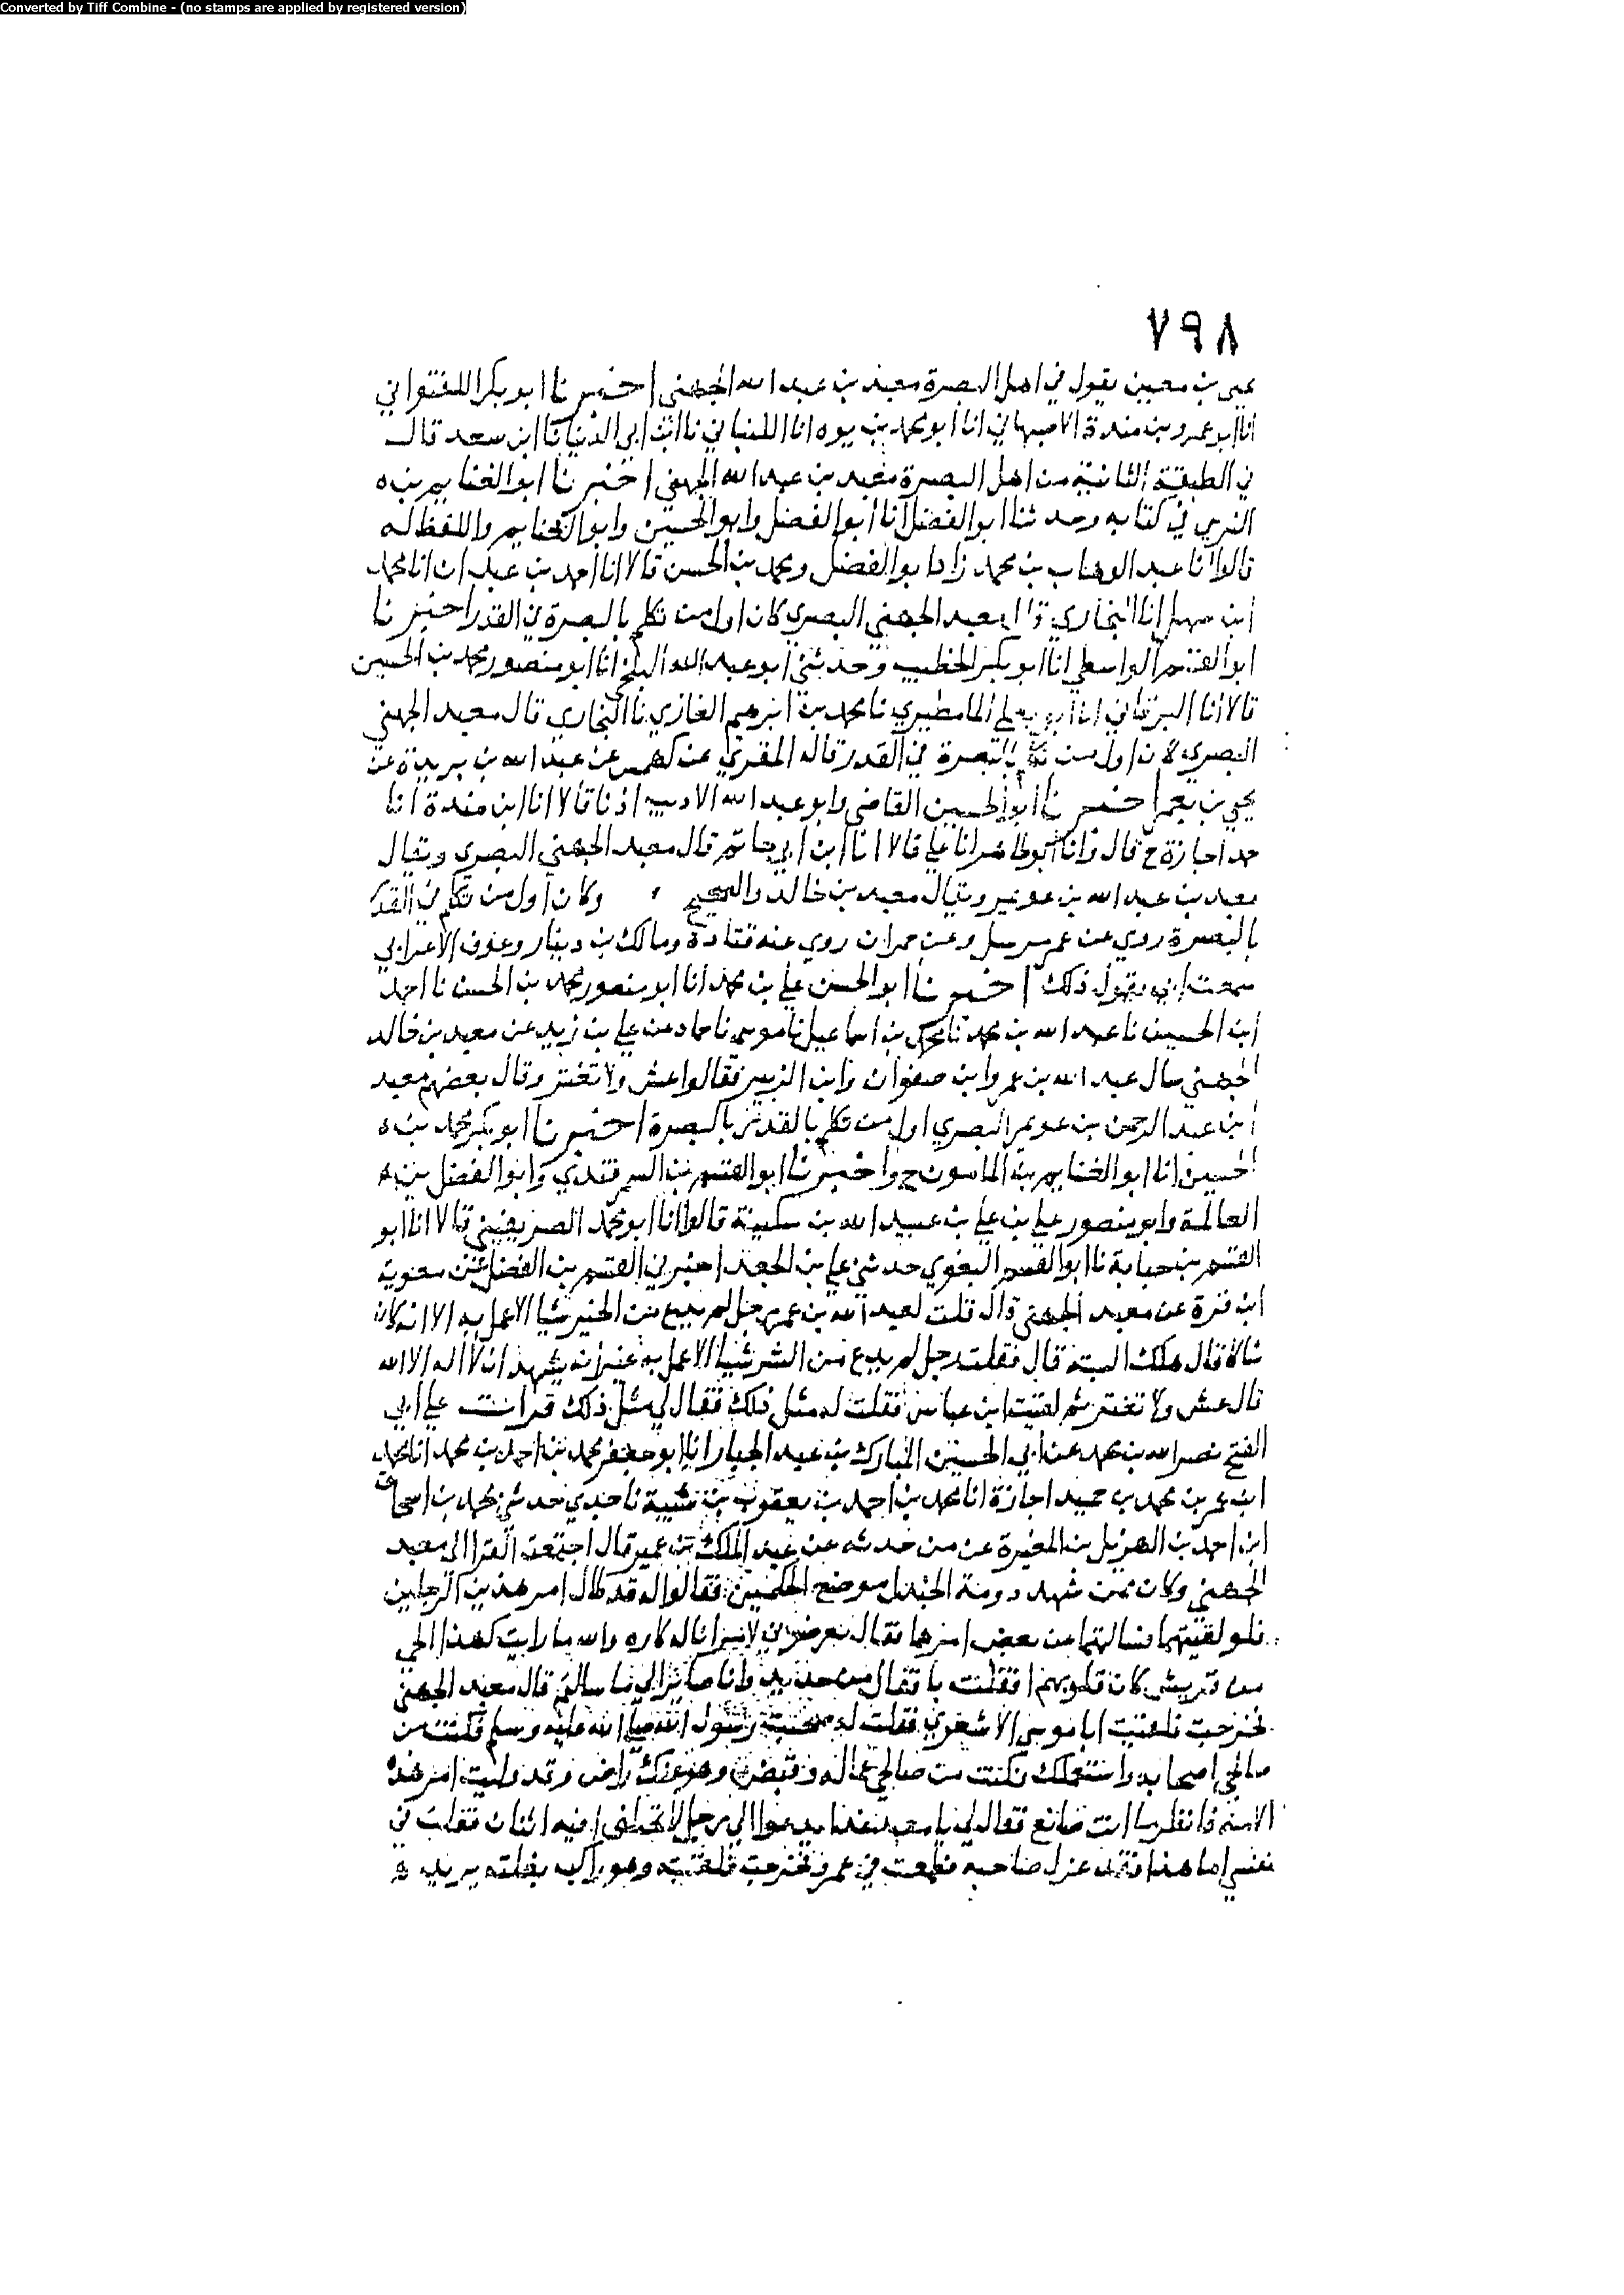 Converted by Tiff Combine - (no stamps are applied by registered version)
٧٩٨
يحيى بن معين يقول في اهل البصرة معبد بن عبد الله الجهني اخبرنا ابو بكر اللفتواني
انا ابو عمرو بن مندة الاصبهاني انا ابو محمد بن يوه انا اللنباني نا ابن ابي الدنيا نا ابن سعد قال
في الطبقة الثانية من اهل البصرة معبد بن عبد الله الجهني اخبرنا ابو الغنايم بن
النرسي في كتابه وحدثنا ابو الفضل انا ابو الفضل وابو الحسين وابو الغنايم واللفظ له
قالوا انا عبد الوهاب بن محمد زاد ابو الفضل ومحمد بن الحسن قالا انا احمد بن عبدان انا محمد
ابن سهل انا البخاري قال معبد الجهني البصري كان اول من تكلم بالبصرة في القدر اخبرنا
ابو القسم الواسطي انا ابو بكر الخطيب وحدثني ابو عبد الله البلخي انا ابو منصور محمد بن الحسين
قالا انا البرقاني انا ابو يعلى المامطيري نا محمد بن ابرهيم الغازي نا البخاري قال معبد الجهني
البصري كان اول من تكلم بالبصرة في القدر قاله المقري عن كهمس عن عبد الله بن بريدة عن
يحيى بن يعمر اخبرنا ابو الحسين القاضي وابو عبد الله الاديب اذنا قالا انا ابن مندة انا
حمد اجازة ح قال وانا ابو طاهر انا علي قالا انا ابن ابي حاتم قال معبد الجهني البصري ويقال
معبد بن عبد الله بن عويمر ويقال معبد بن خالد والصحيح وكان اول من تكلم في القدر
بالبصرة روى عن عمر مرسل وعن حمران روى عنه قتادة ومالك بن دينار وعوف الاعرابي
سمعت ابي يقول ذلك اخبرنا ابو الحسن علي بن محمد انا ابو منصور محمد بن الحسن نا احمد
ابن الحسين نا عبد الله بن محمد نا محمد بن اسماعيل نا موسى نا حماد عن علي بن زيد عن معبد بن خالد
الجهني سال عبد الله بن عمر وابن صفوان وابن الزبير فقالوا عش ولا تغتر وقال بعضهم معبد
ابن عبد الرحمن بن عويمر البصري اول من تكلم بالقدر بالبصرة اخبرنا ابو بكر محمد بن
الحسين انا ابو الغنايم بن المامون ح واخبرنا ابو القسم بن السمرقندي وابو الفضل بن
العالمة وابو منصور علي بن علي بن عبيد الله بن سكينة قالوا انا ابو محمد الصريفيني قالا انا ابو
القسم بن حبابة نا ابو القسم البغوي حدثني علي بن الجعد اخبرني القسم بن الفضل عن معوية
ابن قرة عن معبد الجهني قال قلت لعبد الله بن عمر رجل لم يدع من الخير شيا الا عمل به الا انه كان
شاكا قال هلك البتة قال فقلت رجل لم يدع من الشر شيا الا عمل به غير انه يشهد ان لا اله الا الله
قال عش ولا تغتر ثم لقيت ابن عباس فقلت له مثل ذلك فقال لي مثل ذلك قرات على ابي
الفتح نصر الله بن محمد عن ابي الحسين المبارك بن عبد الجبار انا ابو جعفر محمد بن احمد بن محمد انا محمد
ابن عمر بن محمد بن حميد اجازة انا محمد بن احمد بن يعقوب بن شيبة نا جدي حدثني محمد بن اسحاق
ابن احمد بن الهزيل بن المغيرة عن من حدثه عن عبد الملك بن عمير قال اجتمعت القرا الى معبد
الجهني وكان ممن شهد دومة الجندل موضع الحكمين فقالوا له قد طال امر هذين الرجلين
فلو لقيتهما فسالتهما عن بعض امرهما فقال تعرضوني لامر انا له كاره والله ما رايت كهذا الحي
من قريش كان قلوبهم اقفلت باقفال من حديد وانا صاير الى ما سالتم قال معبد الجهني
فخرجت فلقيت ابا موسى الاشعري فقلت له صحبت رسول الله صلى الله عليه وسلم فكنت من
صالحي اصحابه واستعملك فكنت من صالحي عماله وقبض وهو عنك راض وقد وليت امر هذه
الامة فانظر ما انت صانع فقال لي يا معبد غدا يدعوا الى رجل لا يختلف فيه اثنان فقلت في
نفسي اما هذا فقد عزل صاحبه فطمعت في عمرو فخرجت فلقيته وهو راكب بغلته يريد